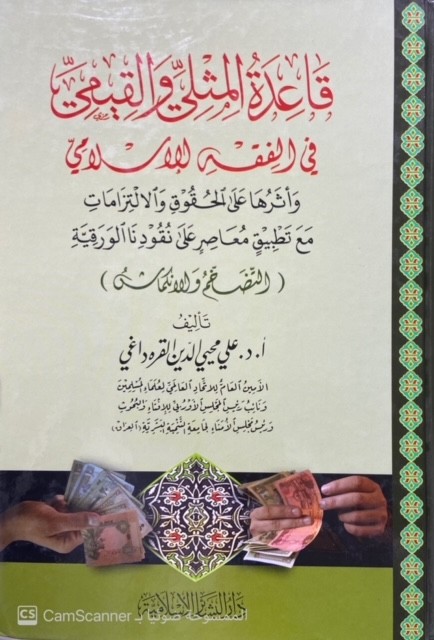 قَاعِدَةُ المِثْلِيِّ وَالقِيمِيِّ
فِي الفِقْهِ الإِسْلَامِيِّ
وَأَثَرُهَا عَلَى الحُقُوقِ وَالالْتِزَامَاتِ
مَعَ تَطْبِيقٍ مُعَاصِرٍ عَلَى نُقُودِنَا الوَرَقِيَّةِ
(التَّضَخُّم وَالانْكِمَاش)
تَأْلِيفُ
أ. د. علي محيي الدين القره داغي
الأمين العام للاتحاد العالمي لعلماء المسلمين
ونائب رئيس المجلس الأوربي للإفتاء والبحوث
ورئيس مجلس الأمناء لجامعة التنمية البشرية (العراق)
دار البشائر الإسلامية
CS CamScanner الممسوحة ضوئيا بـ